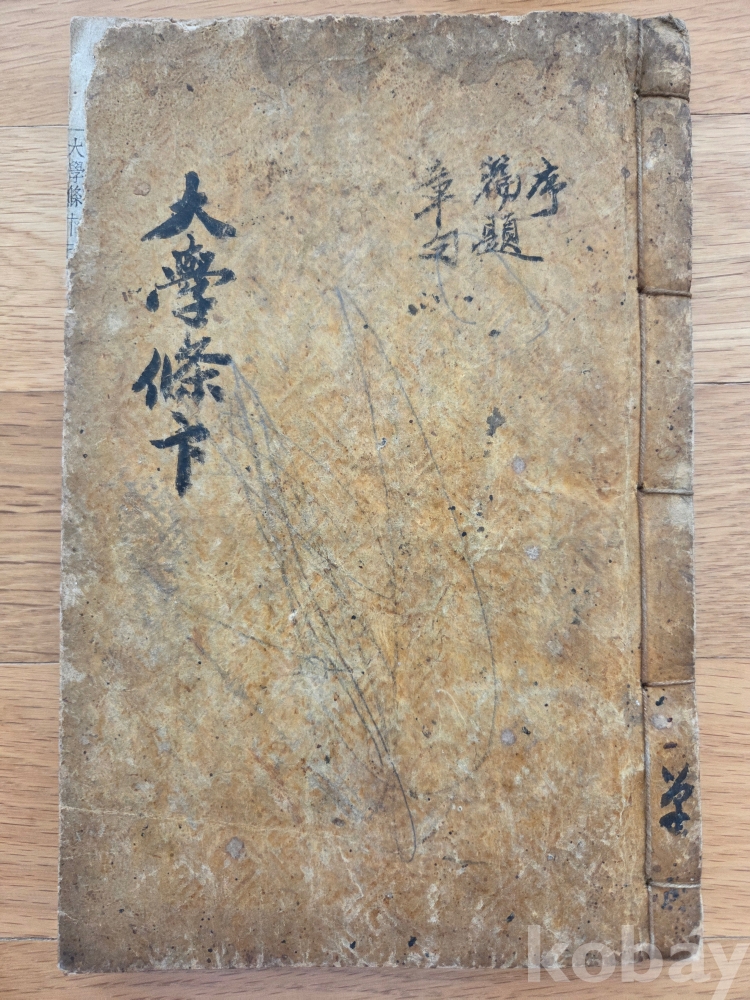 序
篇題
章句
大學條卞
大學條卞
單
kobay